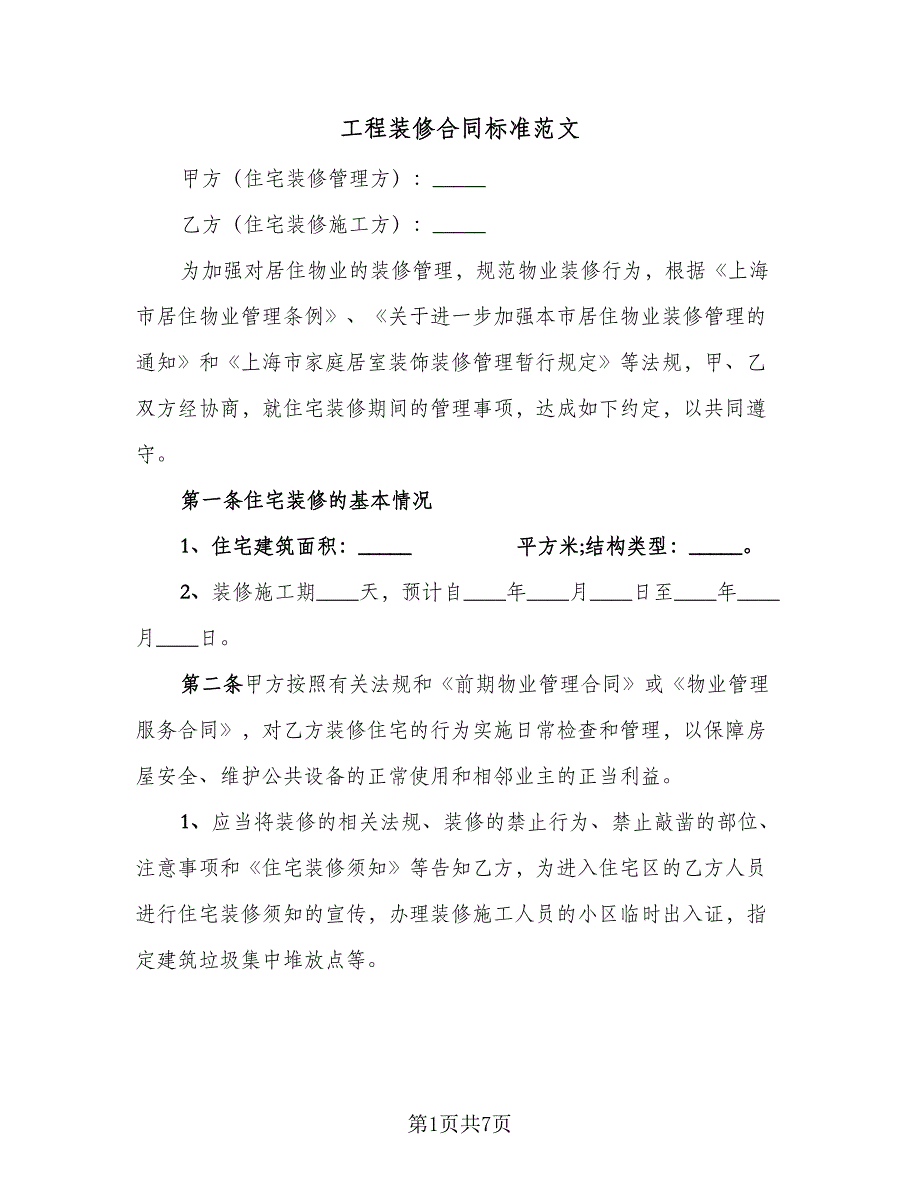 工程装修合同标准范文
甲方（住宅装修管理方）：_____
乙方（住宅装修施工方）：_____
为加强对居住物业的装修管理，规范物业装修行为，根据《上海
市居住物业管理条例》、《关于进一步加强本市居住物业装修管理的
通知》和《上海市家庭居室装饰装修管理暂行规定》等法规，甲、乙
双方经协商，就住宅装修期间的管理事项，达成如下约定，以共同遵
守。
第一条住宅装修的基本情况
1、住宅建筑面积：_____ 平方米;结构类型：_____。
2、装修施工期____天，预计自____年____月____日至____年____
月____日。
第二条甲方按照有关法规和《前期物业管理合同》或《物业管理
服务合同》，对乙方装修住宅的行为实施日常检查和管理，以保障房
屋安全、维护公共设备的正常使用和相邻业主的正当利益。
1、应当将装修的相关法规、装修的禁止行为、禁止敲凿的部位、
注意事项和《住宅装修须知》等告知乙方，为进入住宅区的乙方人员
进行住宅装修须知的宣传，办理装修施工人员的小区临时出入证，指
定建筑垃圾集中堆放点等。
第1页共7页